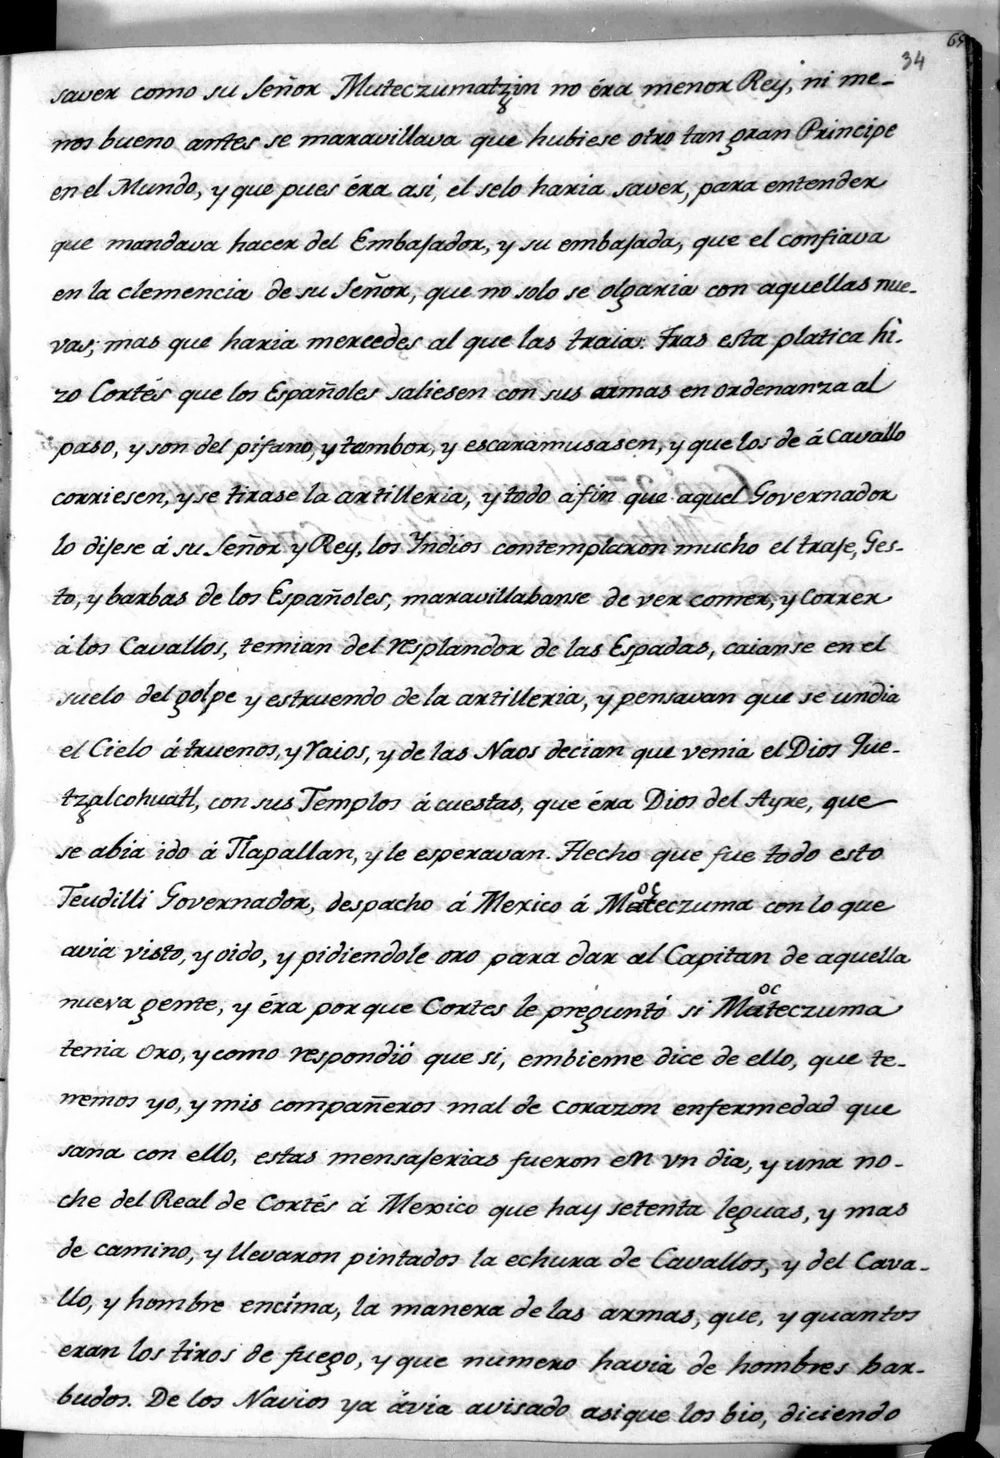 65
34
saver como su Señor Muteczumatzin no éra menor Rey, ni me-
nos bueno antes se maravillava que hubiese otro tan gran Principe
en el Mundo, y que pues éra asi, el selo haria saver, para entender
que mandava hacer del Embajador, y su embajada, que el confiava
en la clemencia de su Señor, que no solo se olgaria con aquellas nue-
vas; mas que haria mercedes al que las traia: tras esta platica hi-
zo Cortés que los Españoles saliesen con sus armas en ordenanza al
paso, y son del pifano, y tambor, y escaramusasen, y que los de á Cavallo
corriesen, y se tirase la artilleria, y todo á fin que aquel Governador
lo dijese á su Señor y Rey, los Yndios contemplaron mucho el traje, Ges-
to, y barbas de los Españoles, maravillabanse de ver comer, y correr
á los Cavallos, temian del resplandor de las Espadas, caianse en el
suelo del golpe y estruendo de la artilleria, y pensavan que se undia
el Cielo á truenos, y raios, y de las Naos decian que venia el Dios Que-
tzalcohuatl, con sus Templos á cuestas, que éra Dios del Ayre, que
se abia ido á Tlapallan, y le esperavan. Hecho que fue todo esto
Teudilli Governador, despacho á Mexico á Moteczuma con lo que
avia visto, y oido, y pidiendole oro para dar al Capitan de aquella
nueva gente, y éra por que Cortes le preguntó si Moteczuma
tenia oro, y como respondió que si, embieme dice de ello, que te-
nemos yo, y mis compañeros mal de corazon enfermedad que
sana con ello, estas mensajerias fueron en vn dia, y una no-
che del Real de Cortés á Mexico que hay setenta leguas, y mas
de camino, y llevaron pintados la echura de Cavallos, y del Cava-
llo, y hombre encima, la manera de las armas, que, y quantos
eran los tiros de fuego, y que numero havia de hombres bar-
budos. De los Navios ya ávia avisado asique los bio, diciendo